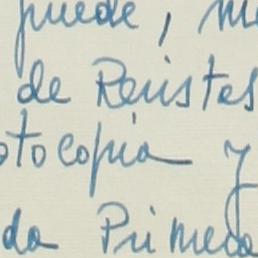 puede, me
de Revistas
otocopia y
da Primera